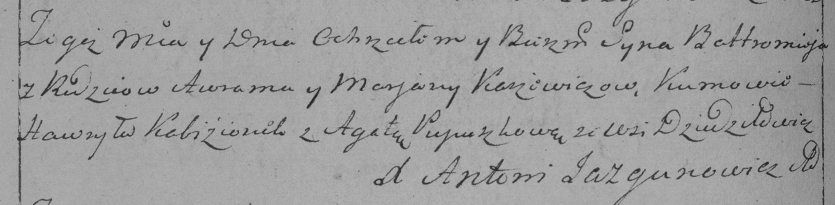 Tegoż Mca y Dnia Ochrzciłem y Birzm Syna Bałtromieja
z Rodzicow Awrama y Marjany Karzewiczow, Kumowie –
Hawryło Kabiżionek z Agatą Pupuszkową ze wsi Dziedziłowicz
Antoni Jazgunowicz